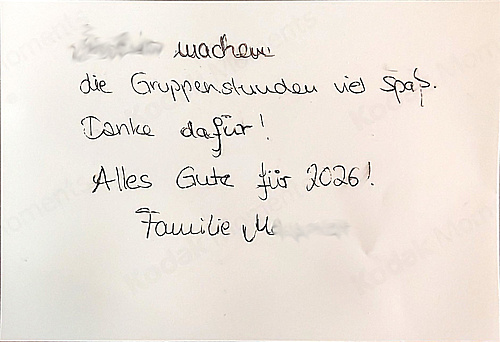 machen
die Gruppenstunden viel Spaß.
Danke dafür!
Alles Gute für 2026!
Familie M